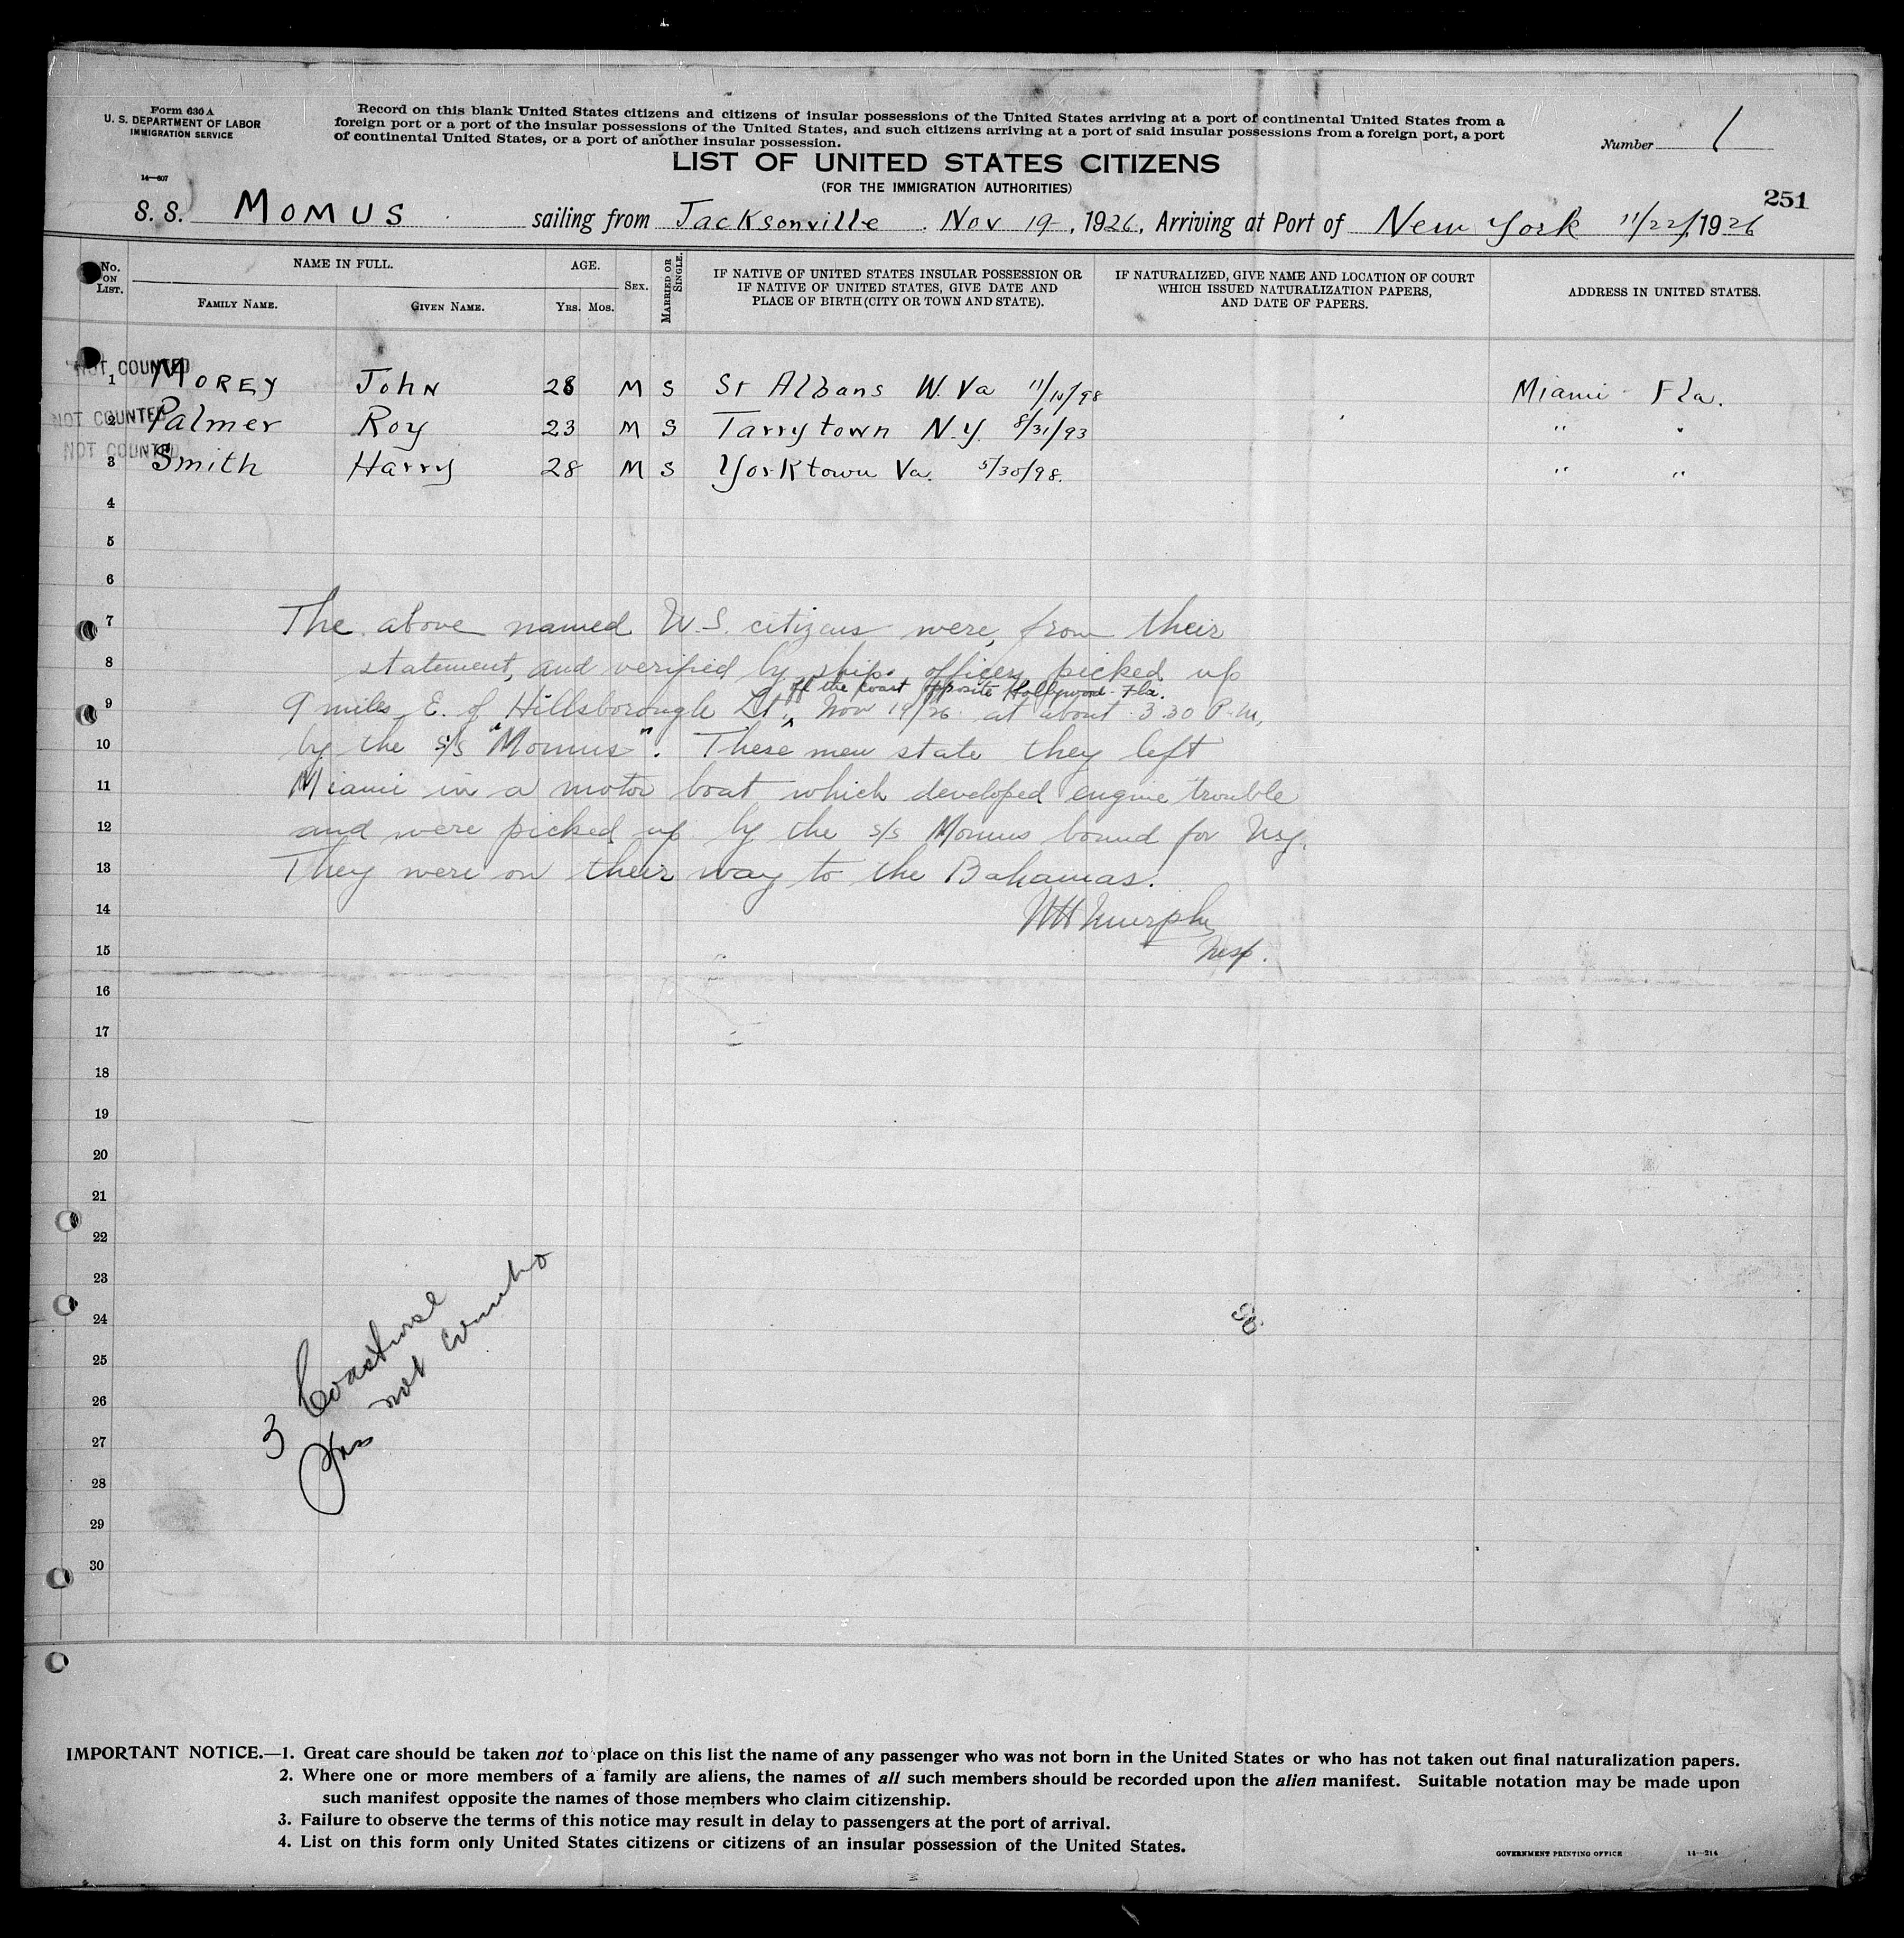 Form 630 A
U. S. DEPARTMENT OF LABOR
IMMIGRATION SERVICE
14—607
Record on this blank United States citizens and citizens of insular possessions of the United States arriving at a port of continental United States from a
foreign port or a port of the insular possessions of the United States, and such citizens arriving at a port of said insular possessions from a foreign port, a port
of continental United States, or a port of another insular possession.
Number 1
LIST OF UNITED STATES CITIZENS
(FOR THE IMMIGRATION AUTHORITIES)
251
S. S. MOMUS sailing from Jacksonville . Nov 19 , 1926, Arriving at Port of New York 11/22/, 1926
No. ON LIST.
NAME IN FULL.
FAMILY NAME.
GIVEN NAME.
AGE.
Yrs. Mos.
SEX.
MARRIED OR SINGLE.
IF NATIVE OF UNITED STATES INSULAR POSSESSION OR
IF NATIVE OF UNITED STATES, GIVE DATE AND
PLACE OF BIRTH (CITY OR TOWN AND STATE).
IF NATURALIZED, GIVE NAME AND LOCATION OF COURT
WHICH ISSUED NATURALIZATION PAPERS,
AND DATE OF PAPERS.
ADDRESS IN UNITED STATES.
NOT COUNTED
1 MOREY John 28 M S St Albans W. Va 11/10/98 Miami Fla.
NOT COUNTED
2 Palmer Roy 23 M S Tarrytown N.Y. 8/31/93 " "
NOT COUNTED
3 Smith Harry 28 M S Yorktown Va. 5/30/98. " "
4
5
6
7 The above named U.S. citizens were, from their
8 statement, and verified by ships officers picked up
off the coast opposite Hollywood Fla.
9 9 miles E. of Hillsborough Lt., Nov 19/26 at about 3.30 P.M.,
10 by the s/s "Momus". These men state they left
11 Miami in a motor boat which developed engine trouble
12 and were picked up by the s/s Momus bound for N.Y.
13 They were on their way to the Bahamas.
14 WH Murphy
15 Insp.
16
17
18
19
20
21
22
23
24
25
26
27
28
29
30
3 Coastwise
not counted
IMPORTANT NOTICE.—1. Great care should be taken not to place on this list the name of any passenger who was not born in the United States or who has not taken out final naturalization papers.
2. Where one or more members of a family are aliens, the names of all such members should be recorded upon the alien manifest. Suitable notation may be made upon
such manifest opposite the names of those members who claim citizenship.
3. Failure to observe the terms of this notice may result in delay to passengers at the port of arrival.
4. List on this form only United States citizens or citizens of an insular possession of the United States.
GOVERNMENT PRINTING OFFICE 14—214